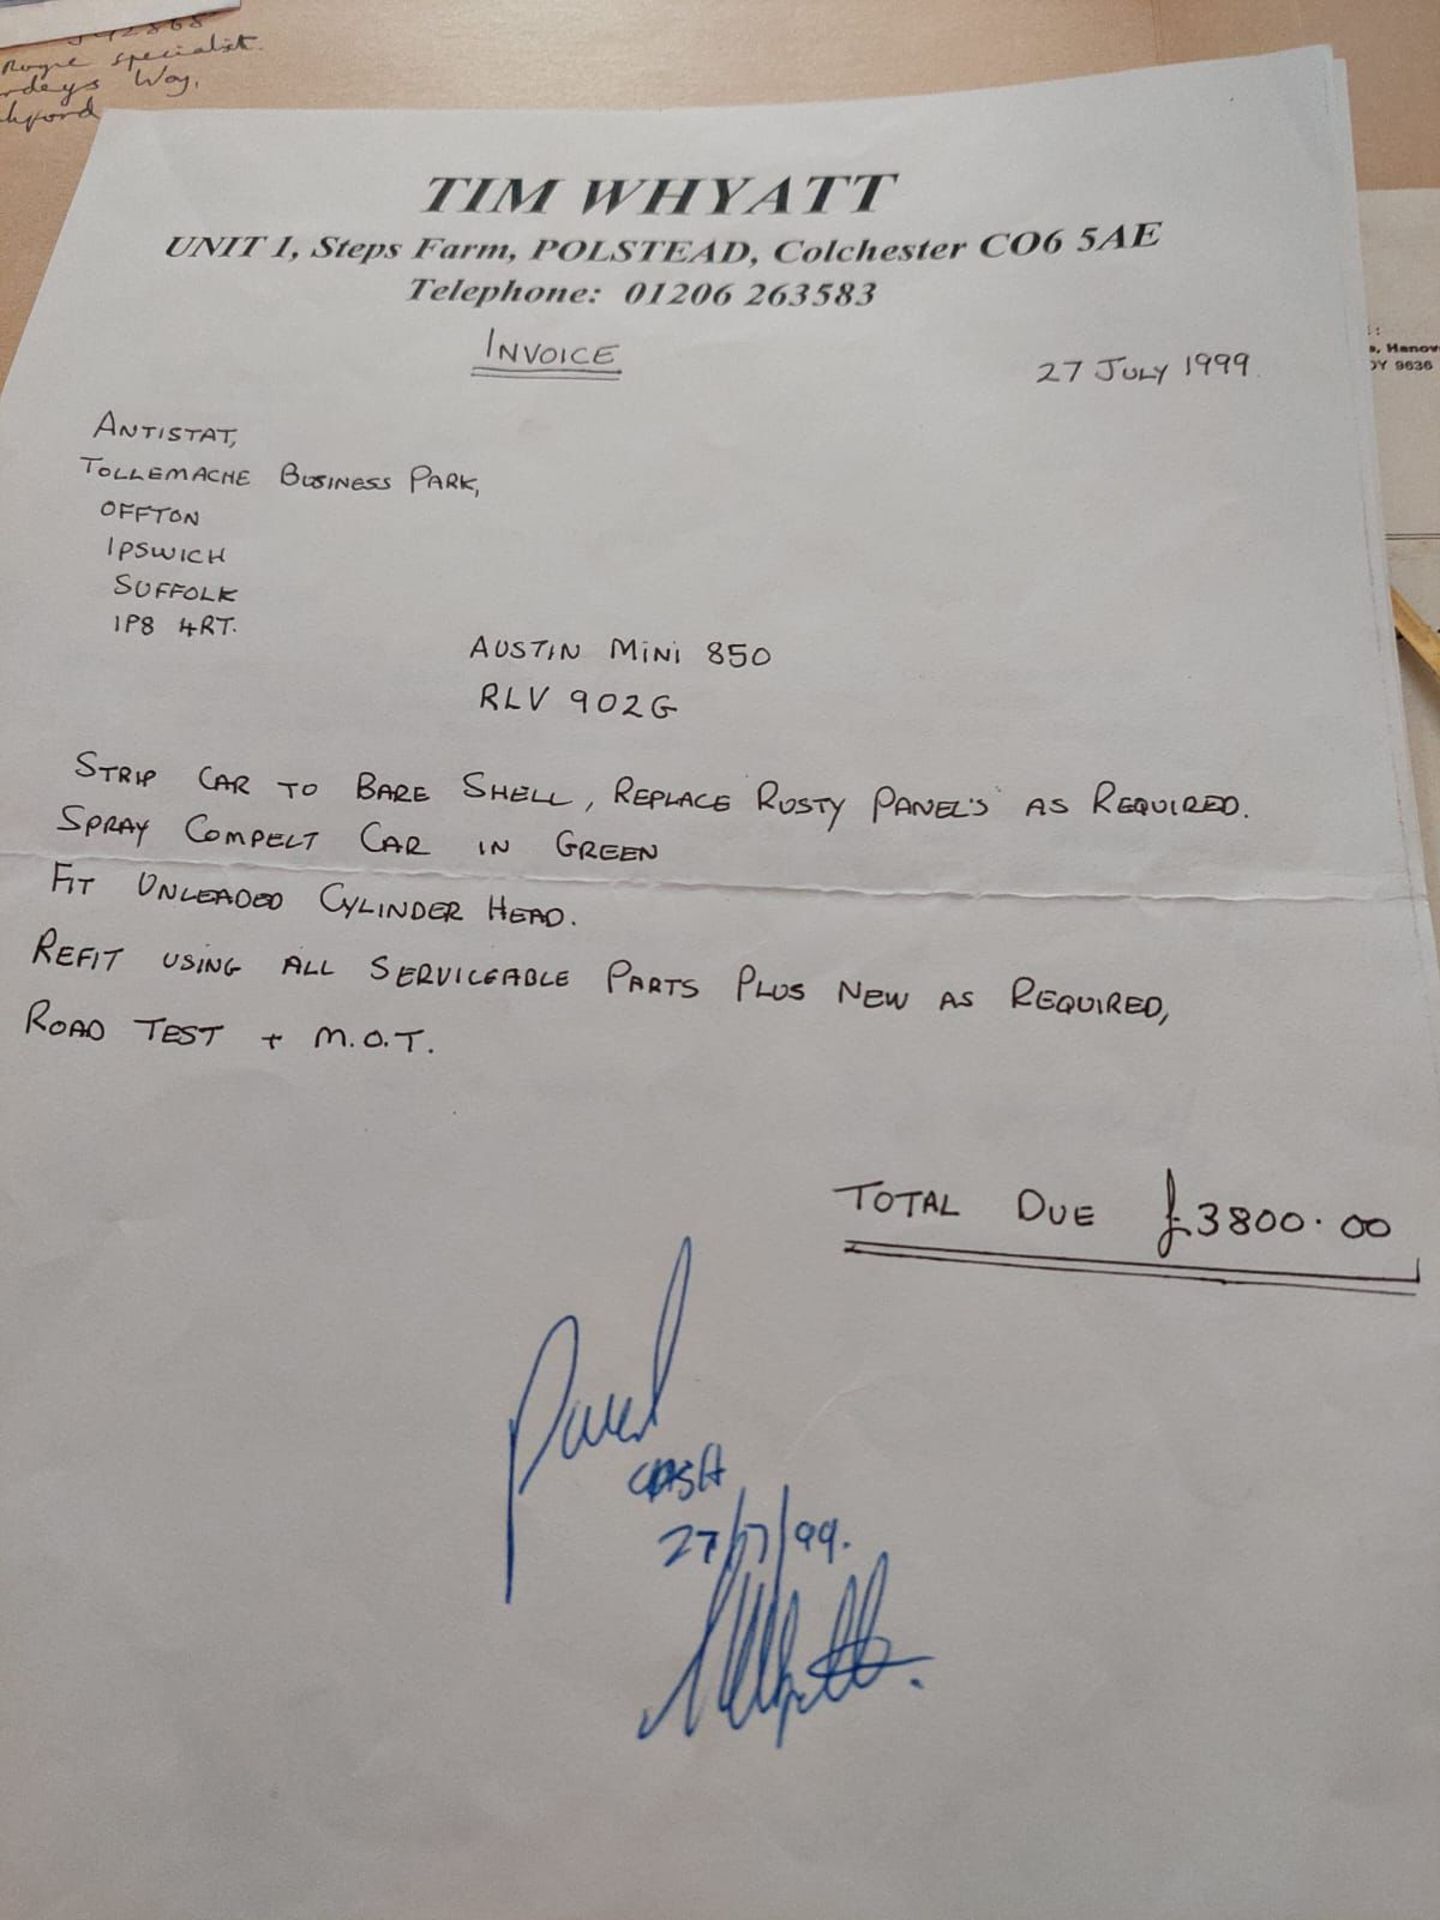 Rogue specialist.
Way,
TIM WHYATT
UNIT 1, Steps Farm, POLSTEAD, Colchester CO6 5AE
Telephone: 01206 263583
INVOICE
27 JULY 1999.
, Hanov
DY 9636
ANTISTAT,
TOLLEMACHE BUSINESS PARK,
OFFTON
IPSWICH
SUFFOLK
IP8 4RT.
AUSTIN MINI 850
RLV 902G
STRIP CAR TO BARE SHELL, REPLACE RUSTY PANEL'S AS REQUIRED.
SPRAY COMPELT CAR IN GREEN
FIT UNLEADED CYLINDER HEAD.
REFIT USING ALL SERVICEABLE PARTS PLUS NEW AS REQUIRED,
ROAD TEST + M.O.T.
TOTAL DUE £3800.00
Paid
CASH
27/7/99.